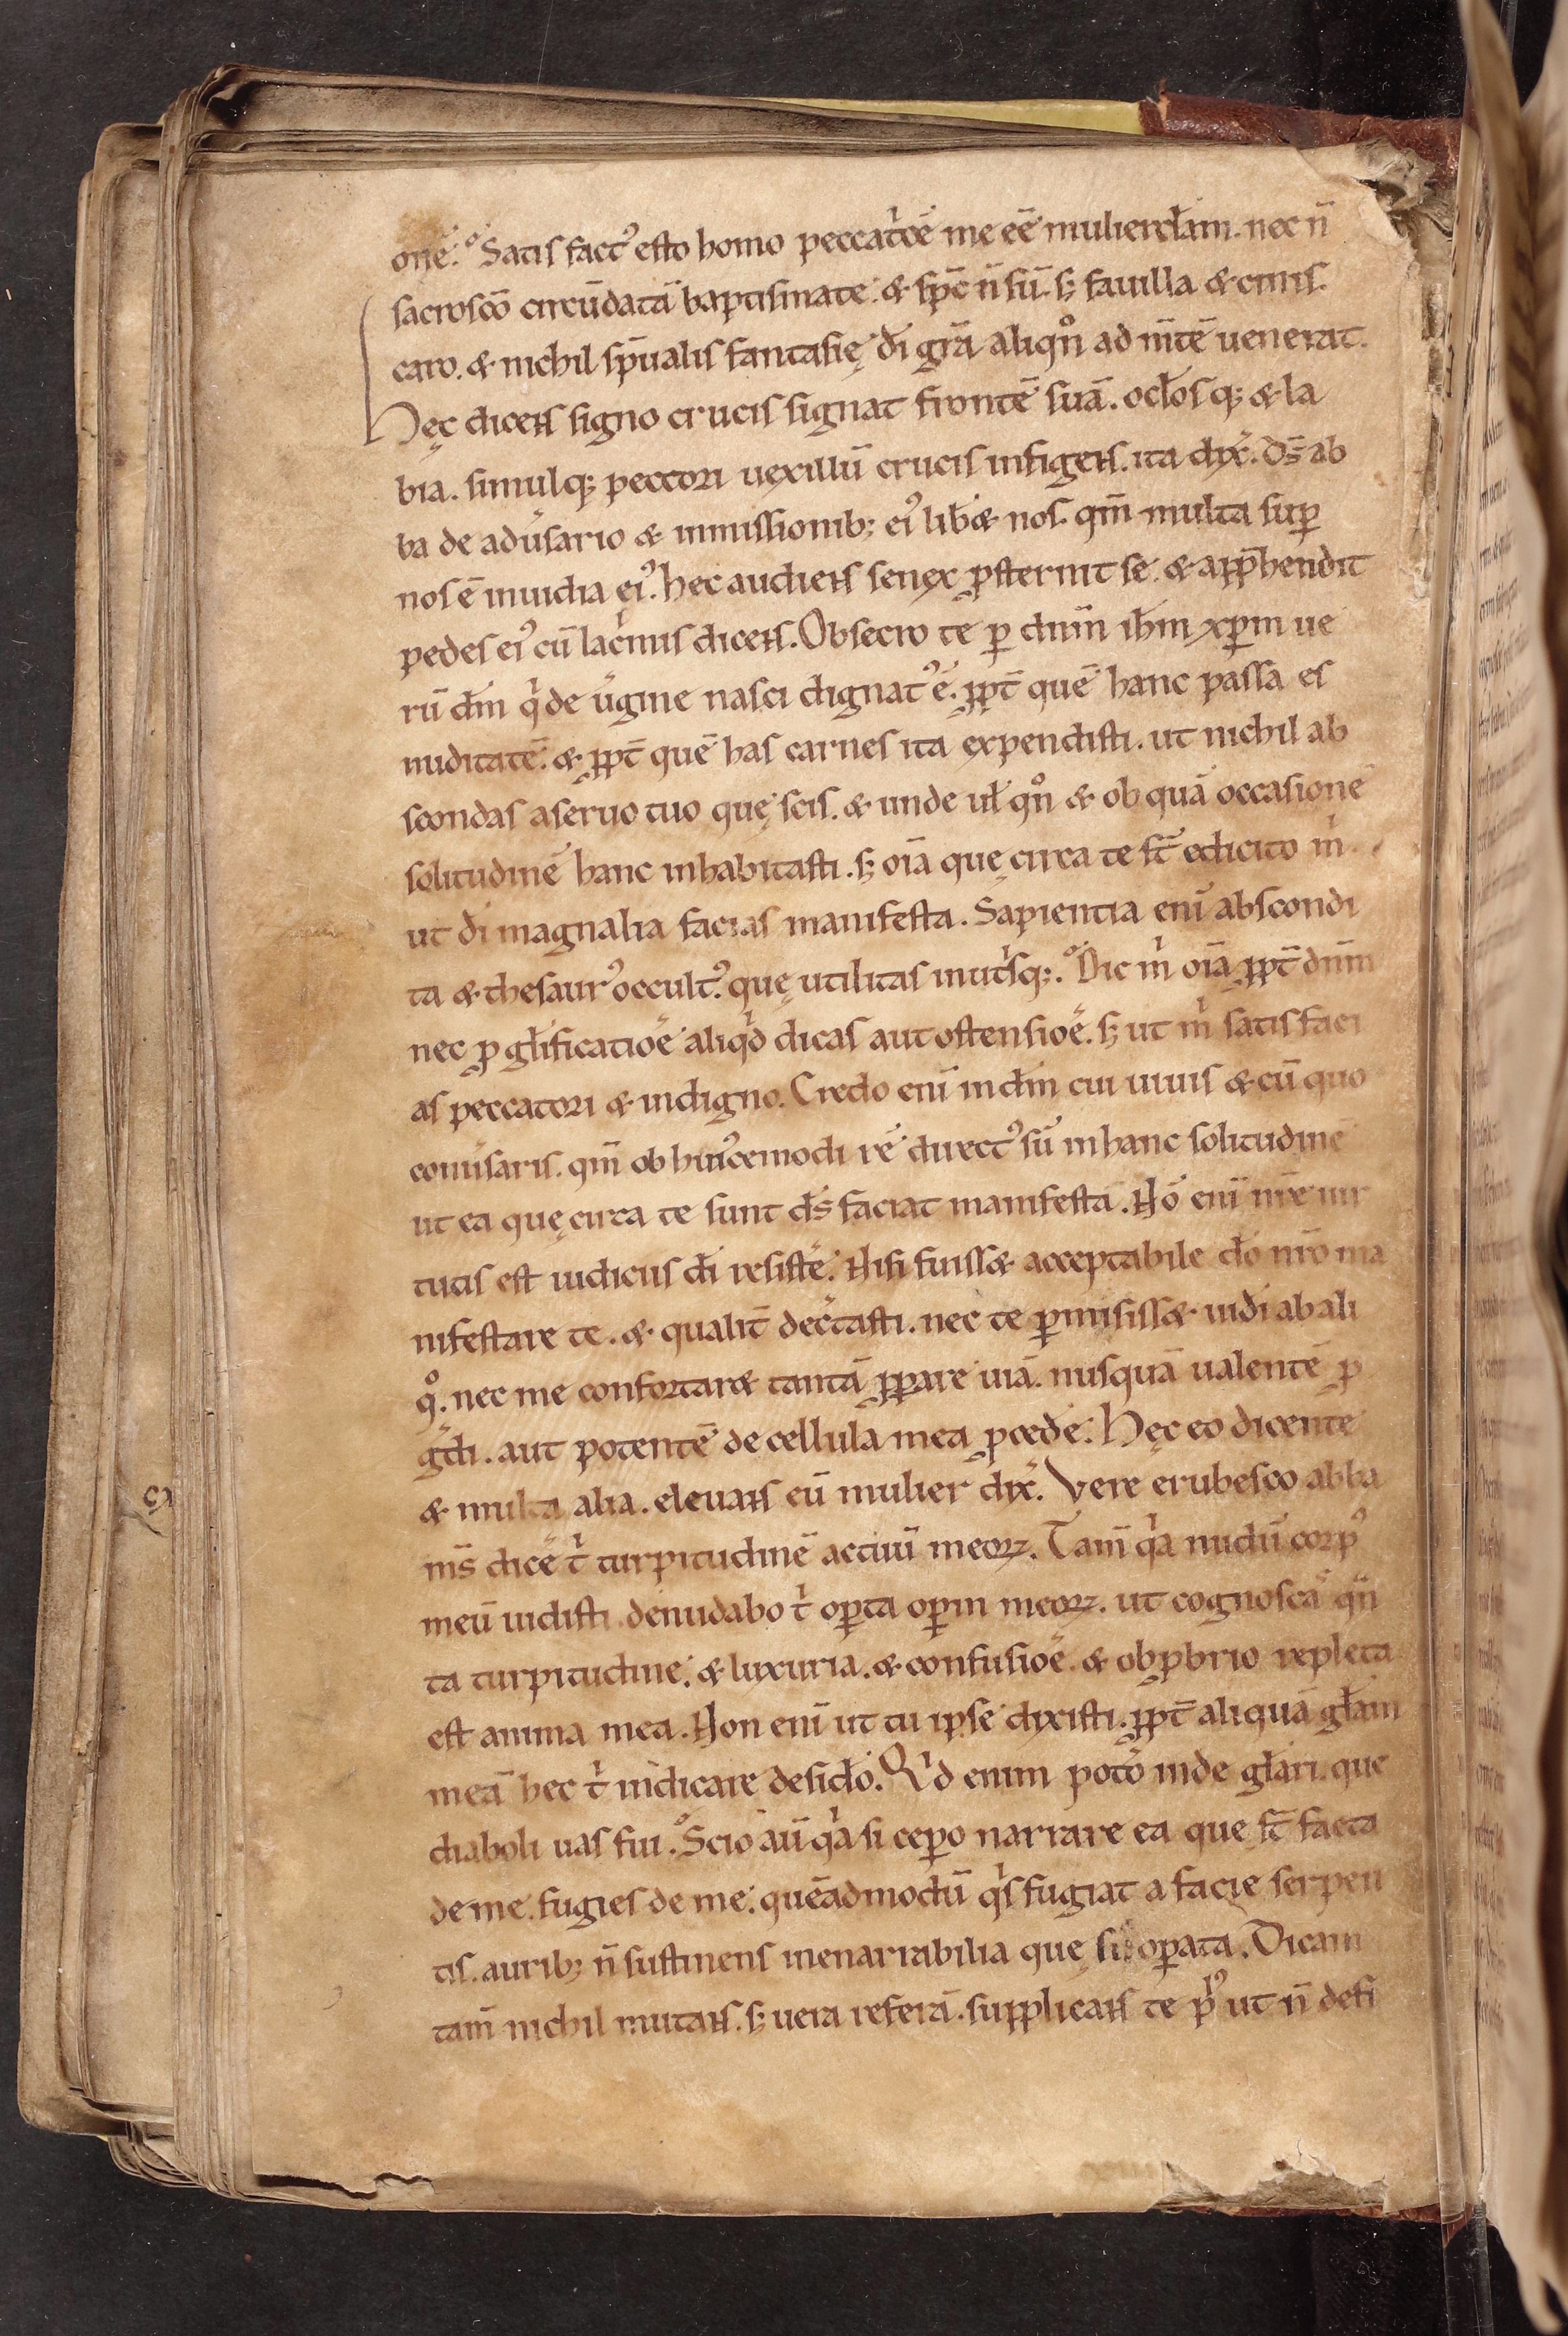 onē. Satis fact᾽ esto homo peccatͥcē me eē mulierclam. nec n̄
sacroscō circūdatā baptismate. & sp̄c n̄ sū. s; fauilla & cinis.
caro. & nichil sp̄ualis fantasię. dī grā aliqn̊ ad m̄tē uenerat.
Hęc dicens signo crucis signat frontē suā. oclosq; & la
bia. simulq; peccori uexillū crucis infigens. ita dix̄. Ds̄ ab
ba de aduͥsario & inmissionib; ei᾽ libͣ& nos. qm̄ multa suꝑ
nos ē inuidia ei᾽. hec audiens senex ꝓsternit se. & app̄hendit
pedes ei᾽ cū lacͥmis dicens. Obsecro te ꝑ dnm̄ ih̄m xp̄m ue
rū dm̄ qͥ de uͥgine nasci dignat᾽ ē. ꝓpt̄ quē hanc passa es
nuditatē. & ꝓpt̄ quē has carnes ita expendisti. ut nichil ab
scondas a seruo tuo quę scis. & unde ul̄ qn̊ & ob quā occasionē
solitudinē hanc inhabitasti. s; oīa quę circa te st̄ edicito mͥ.
ut dī magnalia facias manifesta. Sapientia enī abscondi
ta & thesaur᾽ occult᾽. quę utilitas in utͥsq;. Dic mͥ oīa ꝓpt̄ dnm̄
nec ꝓ gl̄ificatiōe aliqͥd dicas aut ostensiōe. s; ut mͥ satis faci
as peccatori & indigno. Credo enī in dm̄ cui uiuis & cū quo
conuͥsaris. qm̄ ob hui᾽cemodi rē direct᾽ sū in hanc solitudinē
ut ea quę circa te sunt ds̄ faciat manifesta. Nō enī nr̄e uir
tutis est iudiciis dī resistē. Nisi fuiss& acceptabile dō nr̄o ma
nifestare te. & qualit̄ dec̄tasti. nec te ꝑmisiss& uidi ab ali
qͦ. nec me confortar& tantā ꝓpare uiā. nusquā ualentē ꝓ
gͣdi. aut potentē de cellula mea ꝓcedē. Hęc eo dicente
& multa alia. eleuans eū mulier dix̄. Vere erubesco abba
ms̄ dicē tͥ turpitudinē actiuū meoꝝ. Tam̄ qͥa nudū corp᾽
meū uidisti. denudabo tͥ oꝑta oꝑm meoꝝ. ut cognoscas qn̄
ta turpitudine. & luxuria. & confusiōe. & obꝓbrio repleta
est anima mea. Non enī ut tu ipse dixisti. ꝓpt̄ aliquā gl̄am
meā hec tͥ indicare desidō. Qͥd enim poto inde gl̄ari. que
diaboli uas fui. Scio aū qͥa si cepo narrare ea que st̄ facta
de me. fugies de me. quēadmodū qͥs fugiat a facie serpen
tis. aurib; n̄ sustinens inenarrabilia que sū oꝑata. Dicam
tam̄ nichil mutans. s; uera referā. supplicans te pͥ᾽ ut n̄ defi